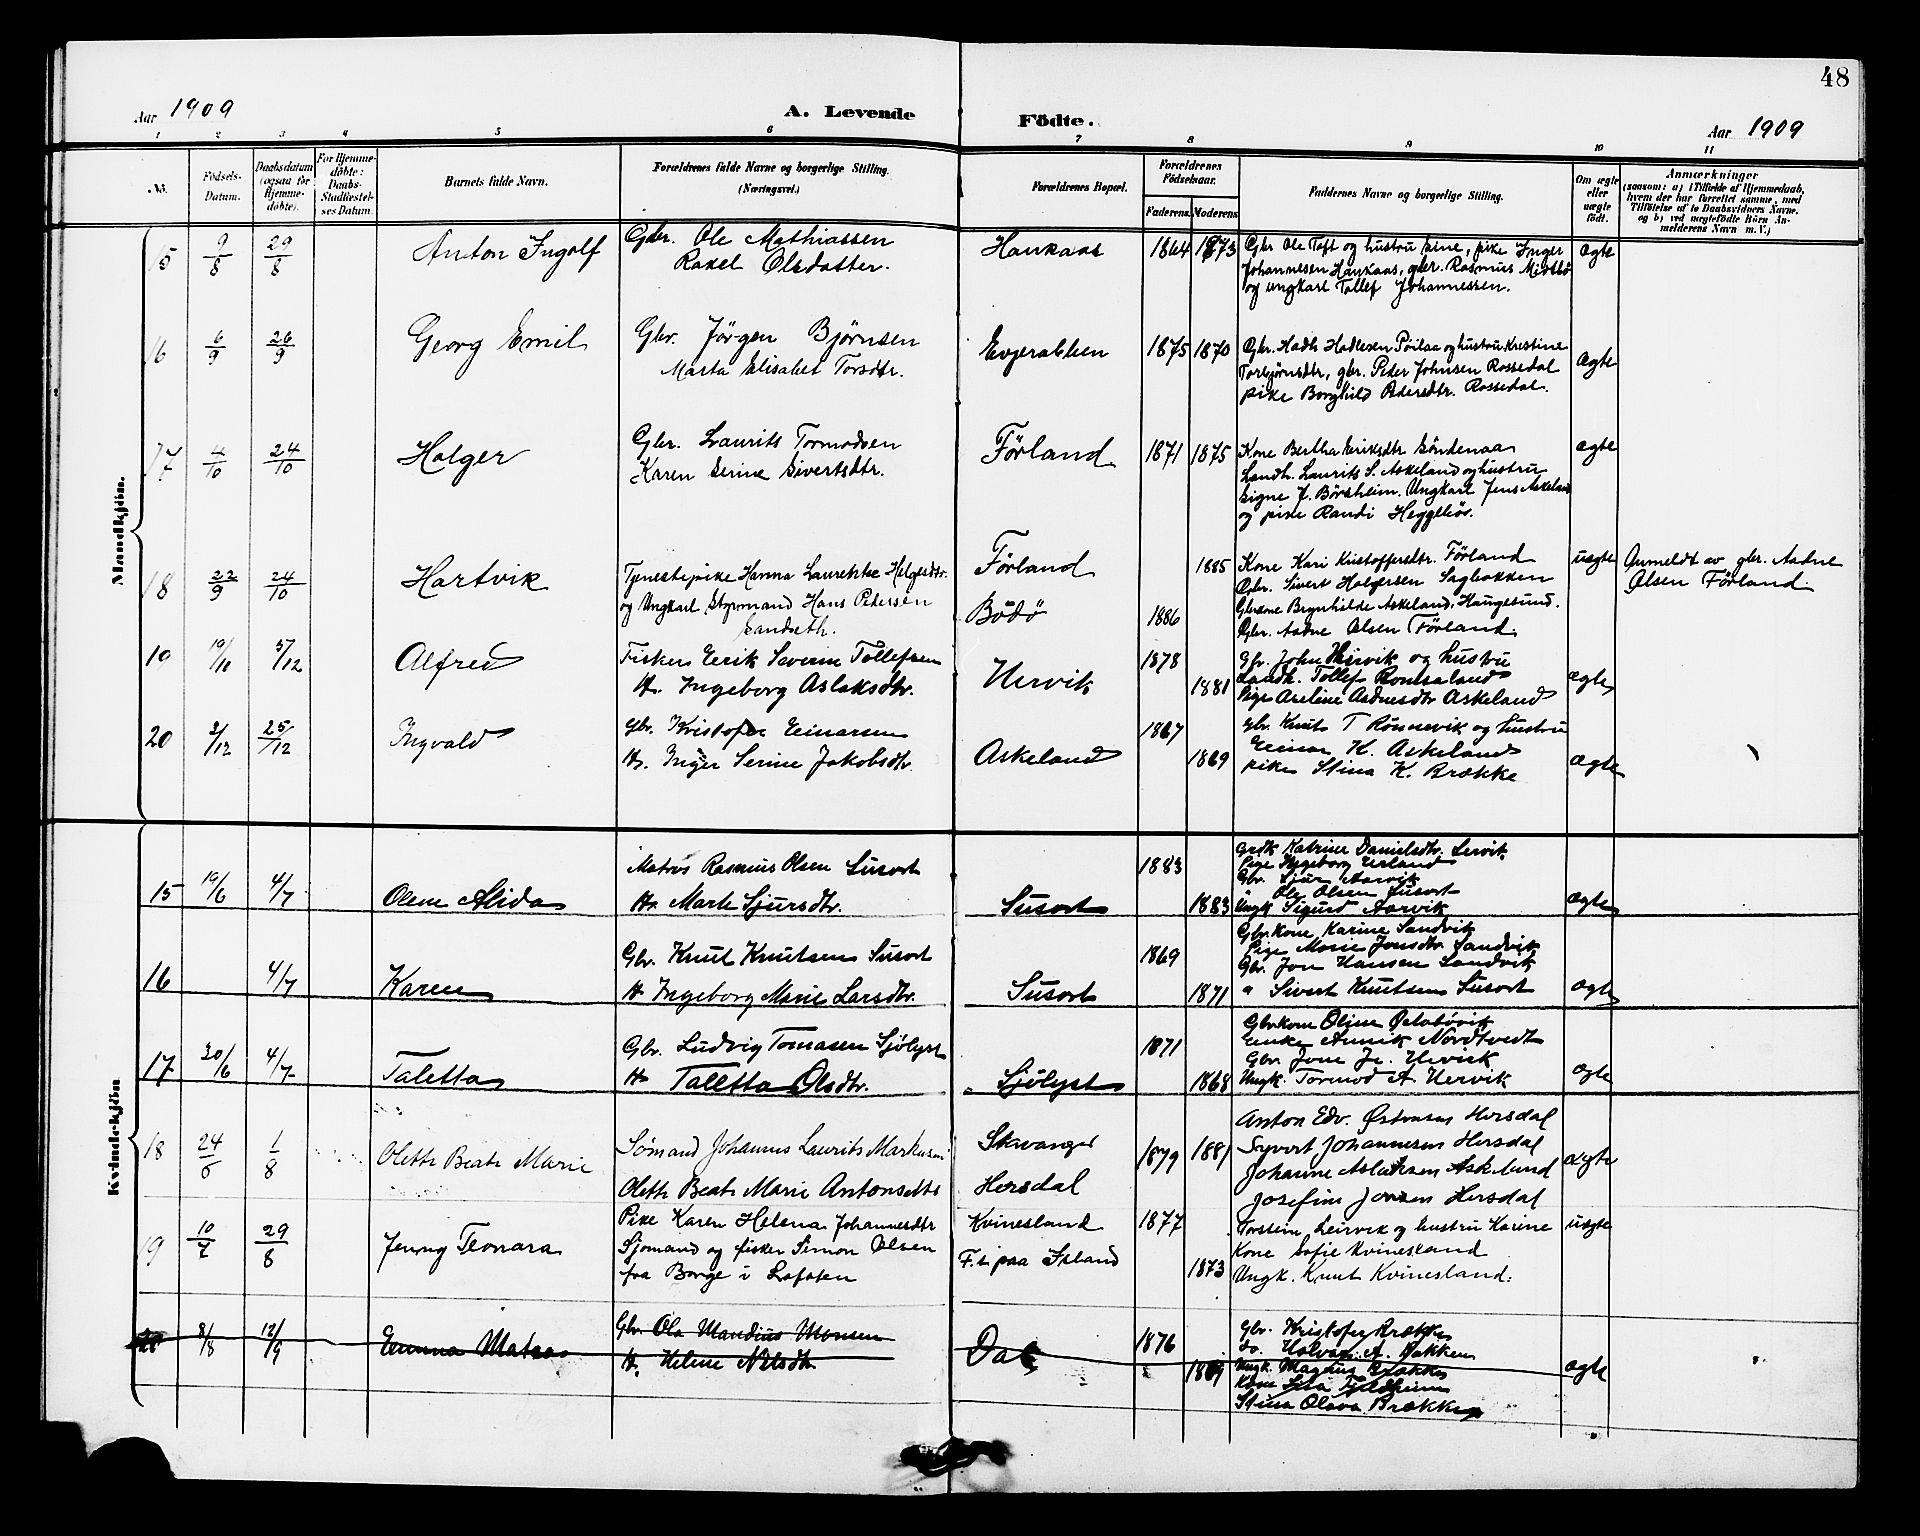 48
Aar 1909
A. Levende
Födte.
Aar 1909
1 2 3 4 5 6 7 8 9 10 11
No.
Födsels-
Datum.
Daabsdatum
(ogsaa for
Hjemme-
döbte).
For Hjemme-
döbte:
Daabs-
Stadfæstel-
ses Datum.
Barnets fulde Navn.
Forældrenes fulde Navne og borgerlige Stilling.
(Næringsvei.)
Forældrenes Bopæl.
Forældrenes
Födselsaar.
Faderens. Moderens.
Faddernes Navne og borgerlige Stilling.
Om ægte
eller
uægte
födt.
Anmærkninger
(saasom: a) i Tilfælde af Hjemmedaab,
hvem der har forrettet samme, med
Tilföielse af to Daabsvidners Navne.
og b) ved uægtefödte Börn An-
melderens Navn m. V.)
Mandkjön.
15 9/8 29/8 Anton Ingolf
Gbr. Ole Mathiassen
Rakel Olsdatter.
Haukaas 1864 1873
Gbr Ole Toft og hustru Serine, pike Inger
Johannesen Haukaas, gbr. Rasmus Midtbö
og ungkarl Tollef Johannessen.
ægte
16 6/9 26/9 Georg Emil
Gbr. Jörgen Bjørnsen
Marta Elisabet Torsdtr.
Evjerabben 1875 1870
Gbr. Hadle Hadlesen og hustru Kristine
Torbjørnsdtr, gbr. Peder Johnsen Rossedal
pike Borghild Pedersdtr. Rossedal.
ægte
17 4/10 24/10 Holger
Gbr. Laurits Tormodsen
Karen Serine Sivertsdtr.
Förland 1871 1875
Kone Bertha Eriksdtr Söndenaa
Landh. Laurits S. Askeland og hustru
Signe J. Börsheim. Ungkarl Jens Askeland
og pike Randi Heggebös.
ægte
18 22/9 24/10 Hartvik
Tjenestepike Hanna Laurentse Helgesdtr.
og Ungkarl Styrmand Hans Pedersen
Sandseth.
Förland
Bodö
1886 1885
Kone Kari Kristoffersdtr. Förland
Gbr. Sivert Holgersen Sagbakken
Gbrkone Brynhilde Askeland. Haugesund.
Gbr. Aadne Olsen Förland.
uægte
Anmeldt av gbr. Aadne
Olsen Förland.
19 19/10 5/12 Alfred
Fisker Eerik Severin Tollefsen
H. Ingeborg Aslaksdtr.
Hervik 1878 1881
Gbr. John Hervik og hustru
Landh. Tollef Romsaland
Pige Aseline Aadnesdtr Askeland
ægte
20 2/12 25/12 Ingvald
Gbr. Kristofer Einarsen
H. Inger Serine Jakobsdtr
Askeland 1867 1869
Gbr. Knut T Rønnevik og hustru
Einar K. Askeland
pike Stina K. Brække
ægte
Kvindekjön
15 19/6 4/7 Olene Alida
Matros Rasmus Olsen Susort
H. Marte Sjursdtr.
Susort 1883 1883
Grdk Katrine Danielsdtr. Lervik
Pige Ingeborg
Gbr. Sjur Aarvik
" Ole Olsen Susort
Ungk Sigurd Aarvik
ægte
16 4/7 Karen
Gbr. Knut Knutsen Susort
H Ingeborg Marie Larsdtr.
Susort 1869 1871
Gbrkone Karine Sandvik
Pige Marie Jonsdtr Sandvik
Gbr. Jon Hansen Sandvik
" Sivert Knutsen Susort
ægte
17 20/6 4/7 Taletta
Gbr. Ludvig Tomasen Sjölyst
H Talletta Olsdtr.
Sjölyst 1871 1868
Gbrkone Oline
Enke Annik Nordtvedt
Gbr. Jone Hervick
Ungk. Tormod A. Hervik
ægte
18 24/6 1/8 Olette Beate Marie
Sømand Johannes Laurits Markusen
Olette Beate Marie Antonsdtr
Stavanger
Hersdal
1879 1881
Anton Edv. Østensen Hersdal
Syvert Johannesen Hersdal
Johanne Aslaksen Askeland
Josefine Jonsen Hersdal
ægte
19 10/7 29/8 Jenny Leonara
Pike Karen Helena Johannesdtr
Sjomand og fisker Simon Olsen
fra Borge i Lofoten
Kvinesland
F.t. paa Island
1877 1873
Torstein Leirvik og hustru Karine
Kone Sofie Kvinesland
Ungk. Knut Kvinesland.
uægte
8/8 12/9 Emma
Gbr. Ola Mandius Monsen
H. Helene Nilsdtr
Dal 1876
Gbr. Kristofer Brække
do. Halvor A. Bakken
Ungk. Magnus Brække
Kone
Stina Olava Brække
ægte